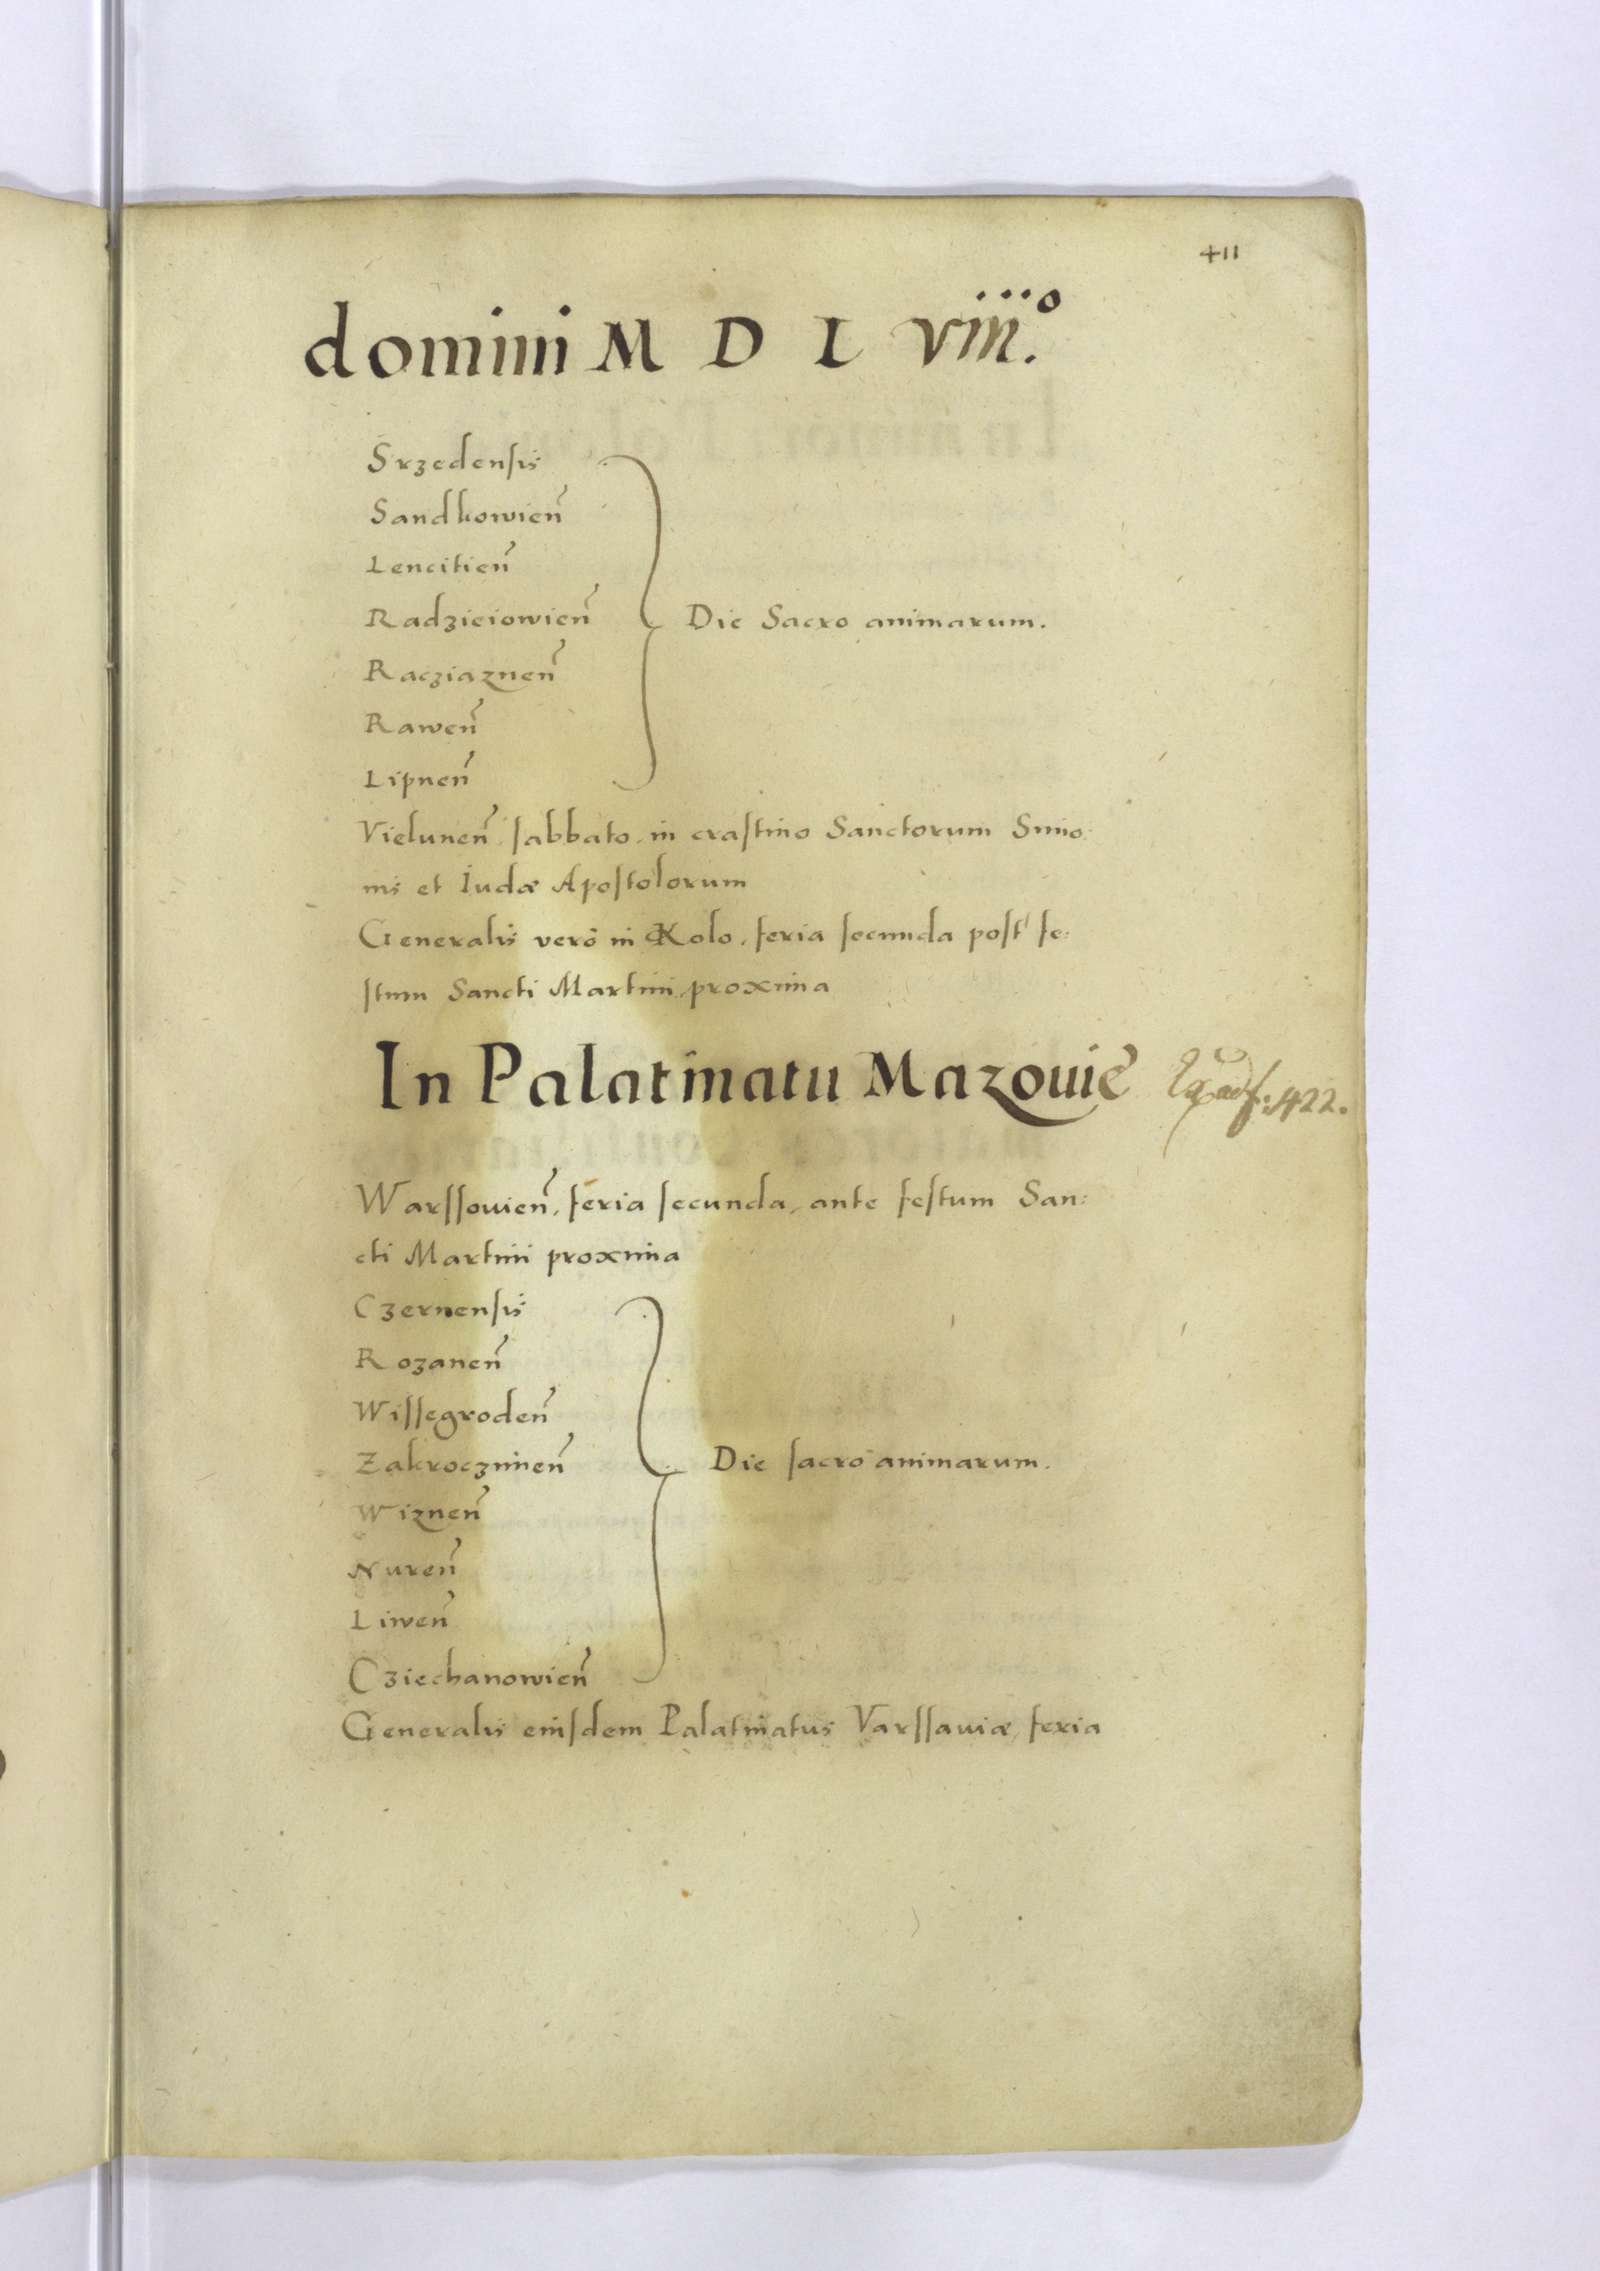 411
domini M D L viii.o
Srzedensis
Sandkowien̄
Lencitien̄
Radzieiowien̄
Die Sacro animarum.
Racziaznen̄
Rawen̄
Lipnen̄
Vielunen̄, sabbato, in crastino Sanctorum Simo:
nis et Iudæ Apostolorum
Generalis verò in Kolo, feria secunda post fe:
stum Sancti Martini, proxima
In Palatinatu Mazouie
ad f: 422.
Warssouien̄, feria secunda, ante festum San:
cti Martini proxima
Czernensis
Rozanen̄
Wissegroden̄
Zakroczimen̄
Die sacro animarum.
Wiznen̄
Nuren̄
Liwen̄
Cziechanowien̄
Generalis eiusdem Palatinatus Varssauiæ, feria